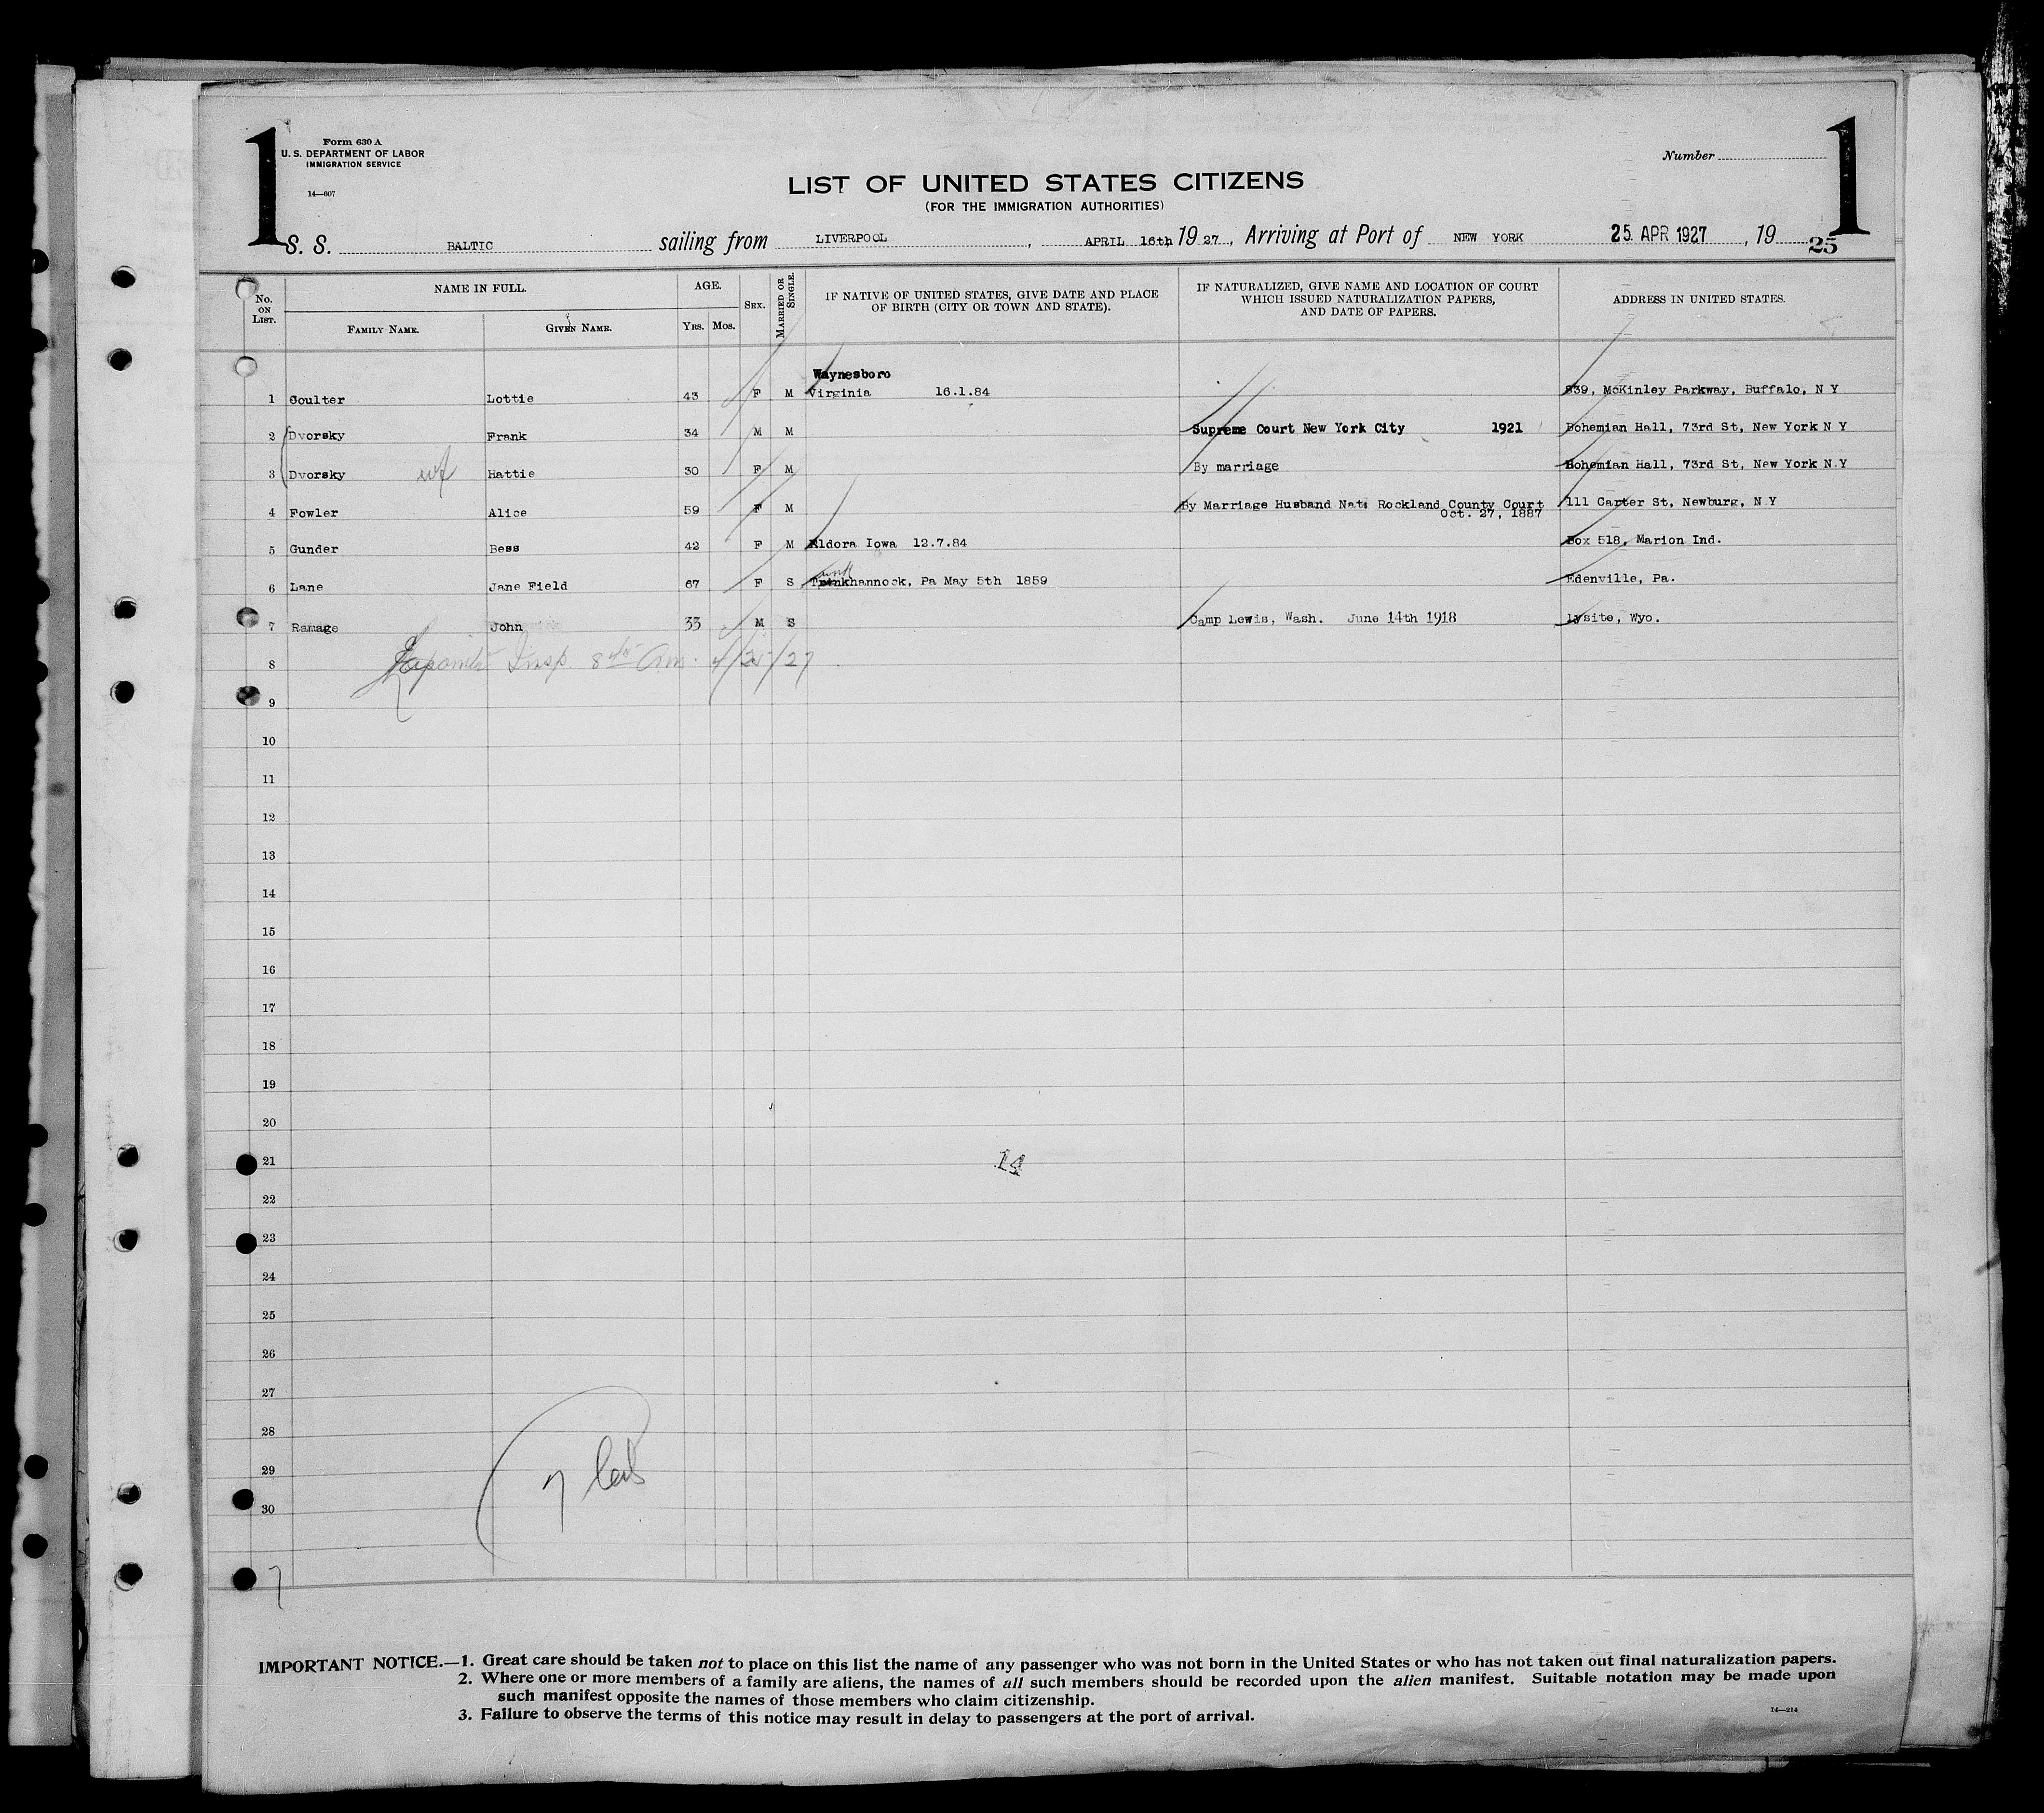 1 Form 630 A 1
U. S. DEPARTMENT OF LABOR
IMMIGRATION SERVICE
14—607
Number
LIST OF UNITED STATES CITIZENS
(FOR THE IMMIGRATION AUTHORITIES)
S. S. BALTIC sailing from LIVERPOOL, APRIL 16th 1927, Arriving at Port of NEW YORK 25 APR 1927, 19 25
No. ON LIST. NAME IN FULL. AGE. SEX. MARRIED OR SINGLE. IF NATIVE OF UNITED STATES, GIVE DATE AND PLACE OF BIRTH (CITY OR TOWN AND STATE). IF NATURALIZED, GIVE NAME AND LOCATION OF COURT WHICH ISSUED NATURALIZATION PAPERS, AND DATE OF PAPERS. ADDRESS IN UNITED STATES.
FAMILY NAME. GIVEN NAME. YRS. MOS.
Waynesboro
1 Coulter Lottie 43 F M Virginia 16.1.84 839, McKinley Parkway, Buffalo, N Y
2 Dvorsky Frank 34 M M Supreme Court New York City 1921 Bohemian Hall, 73rd St, New York N Y
3 Dvorsky wf Hattie 30 F M By marriage Bohemian Hall, 73rd St, New York N.Y
4 Fowler Alice 59 F M By Marriage Husband Nat. Rockland County Court 111 Carter St, Newburg, N Y
Oct. 27, 1887
5 Gunder Bess 42 F M Eldora Iowa 12.7.84 Box 518, Marion Ind.
6 Lane Jane Field 67 F S Tunkhannock, Pa May 5th 1859 Edenville, Pa.
7 Ramage John 33 M S Camp Lewis, Wash. June 14th 1918 Lysite, Wyo.
8 Insp. 4/25/27
9
10
11
12
13
14
15
16
17
18
19
20
21 14
22
23
24
25
26
27
28
29 7
30
7
IMPORTANT NOTICE.—1. Great care should be taken not to place on this list the name of any passenger who was not born in the United States or who has not taken out final naturalization papers.
2. Where one or more members of a family are aliens, the names of all such members should be recorded upon the alien manifest. Suitable notation may be made upon
such manifest opposite the names of those members who claim citizenship.
3. Failure to observe the terms of this notice may result in delay to passengers at the port of arrival.
14—214